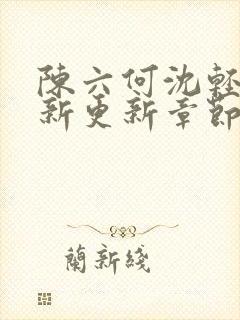 陳六何沈輕
新更新章節
蘭新綫